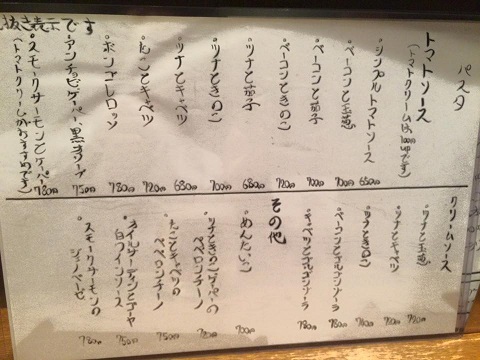 パスタ
トマトソース
(トマトクリームは100円upです)
・シンプルトマトソース 650円
・ベーコンと玉葱 700円
・ベーコンと茄子 700円
・ベーコンときのこ 720円
・ツナと茄子 680円
・ツナときのこ 700円
・ツナとキャベツ 680円
・たことキャベツ 720円
・ボンゴレロッソ 780円
・アンチョビ、ケーパー、黒オリーブ 750円
・スモークサーモンとケーパー 780円
(トマトクリームがおすすめです)
抜き表示です
クリームソース
・ツナと玉葱 720円
・ツナとキャベツ 720円
・ツナときのこ 760円
・ベーコンとゴルゴンゾーラ 780円
・キャベツとゴルゴンゾーラ 780円
その他
・めんたいこ 700円
・ツナときのことケーパーの
ペペロンチーノ
・たことキャベツの
ペペロンチーノ 750円
・オイルサーディンとケーパー
白ワインソース 750円
・スモークサーモンの
ジェノベーゼ 780円